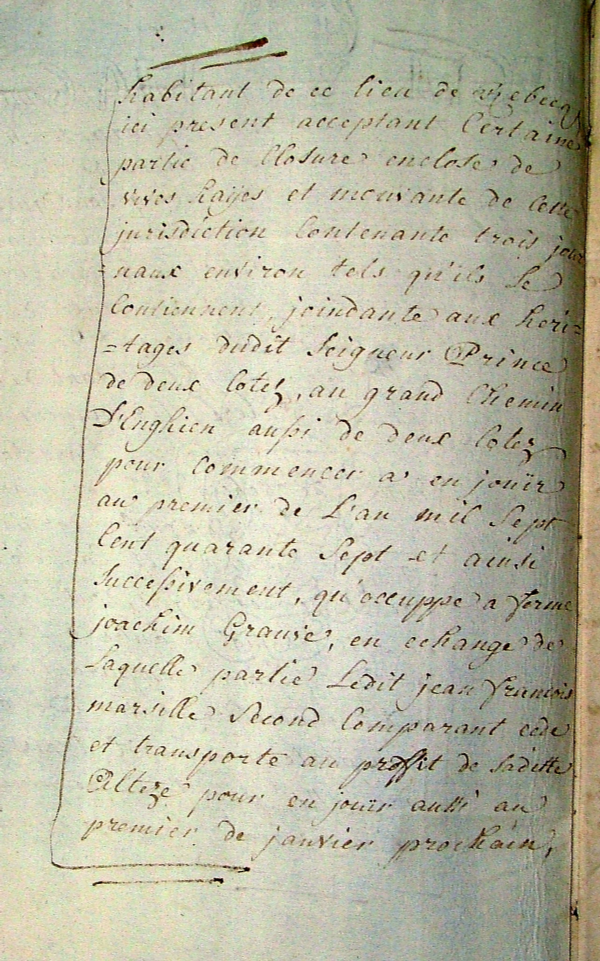 habitant de ce lieu de Rebecq
ici present acceptant Certaine
partie de Closure enclose de
vives hayes et mouvante de Cette
jurisdiction Contenante trois jour
=naux environ tels qu'ils Se
Contiennent, joindante aux heri=
=tages dudit Seigneur Prince
de deux Cotez, au grand Chemin
D'Enghien aussi de deux Cotez
pour Commencer a en jouïr
au premier de L'an mil Sept
Cent quarante Sept et ainsi
Successivement, qu'occuppe a ferme
joachim Gravie, en echange de
Laquelle partie Ledit jean francois
marsille Second Comparant cede
et transporte au proffit de Saditte
Alteze pour en jouir aussi au
premier de janvier prochain,